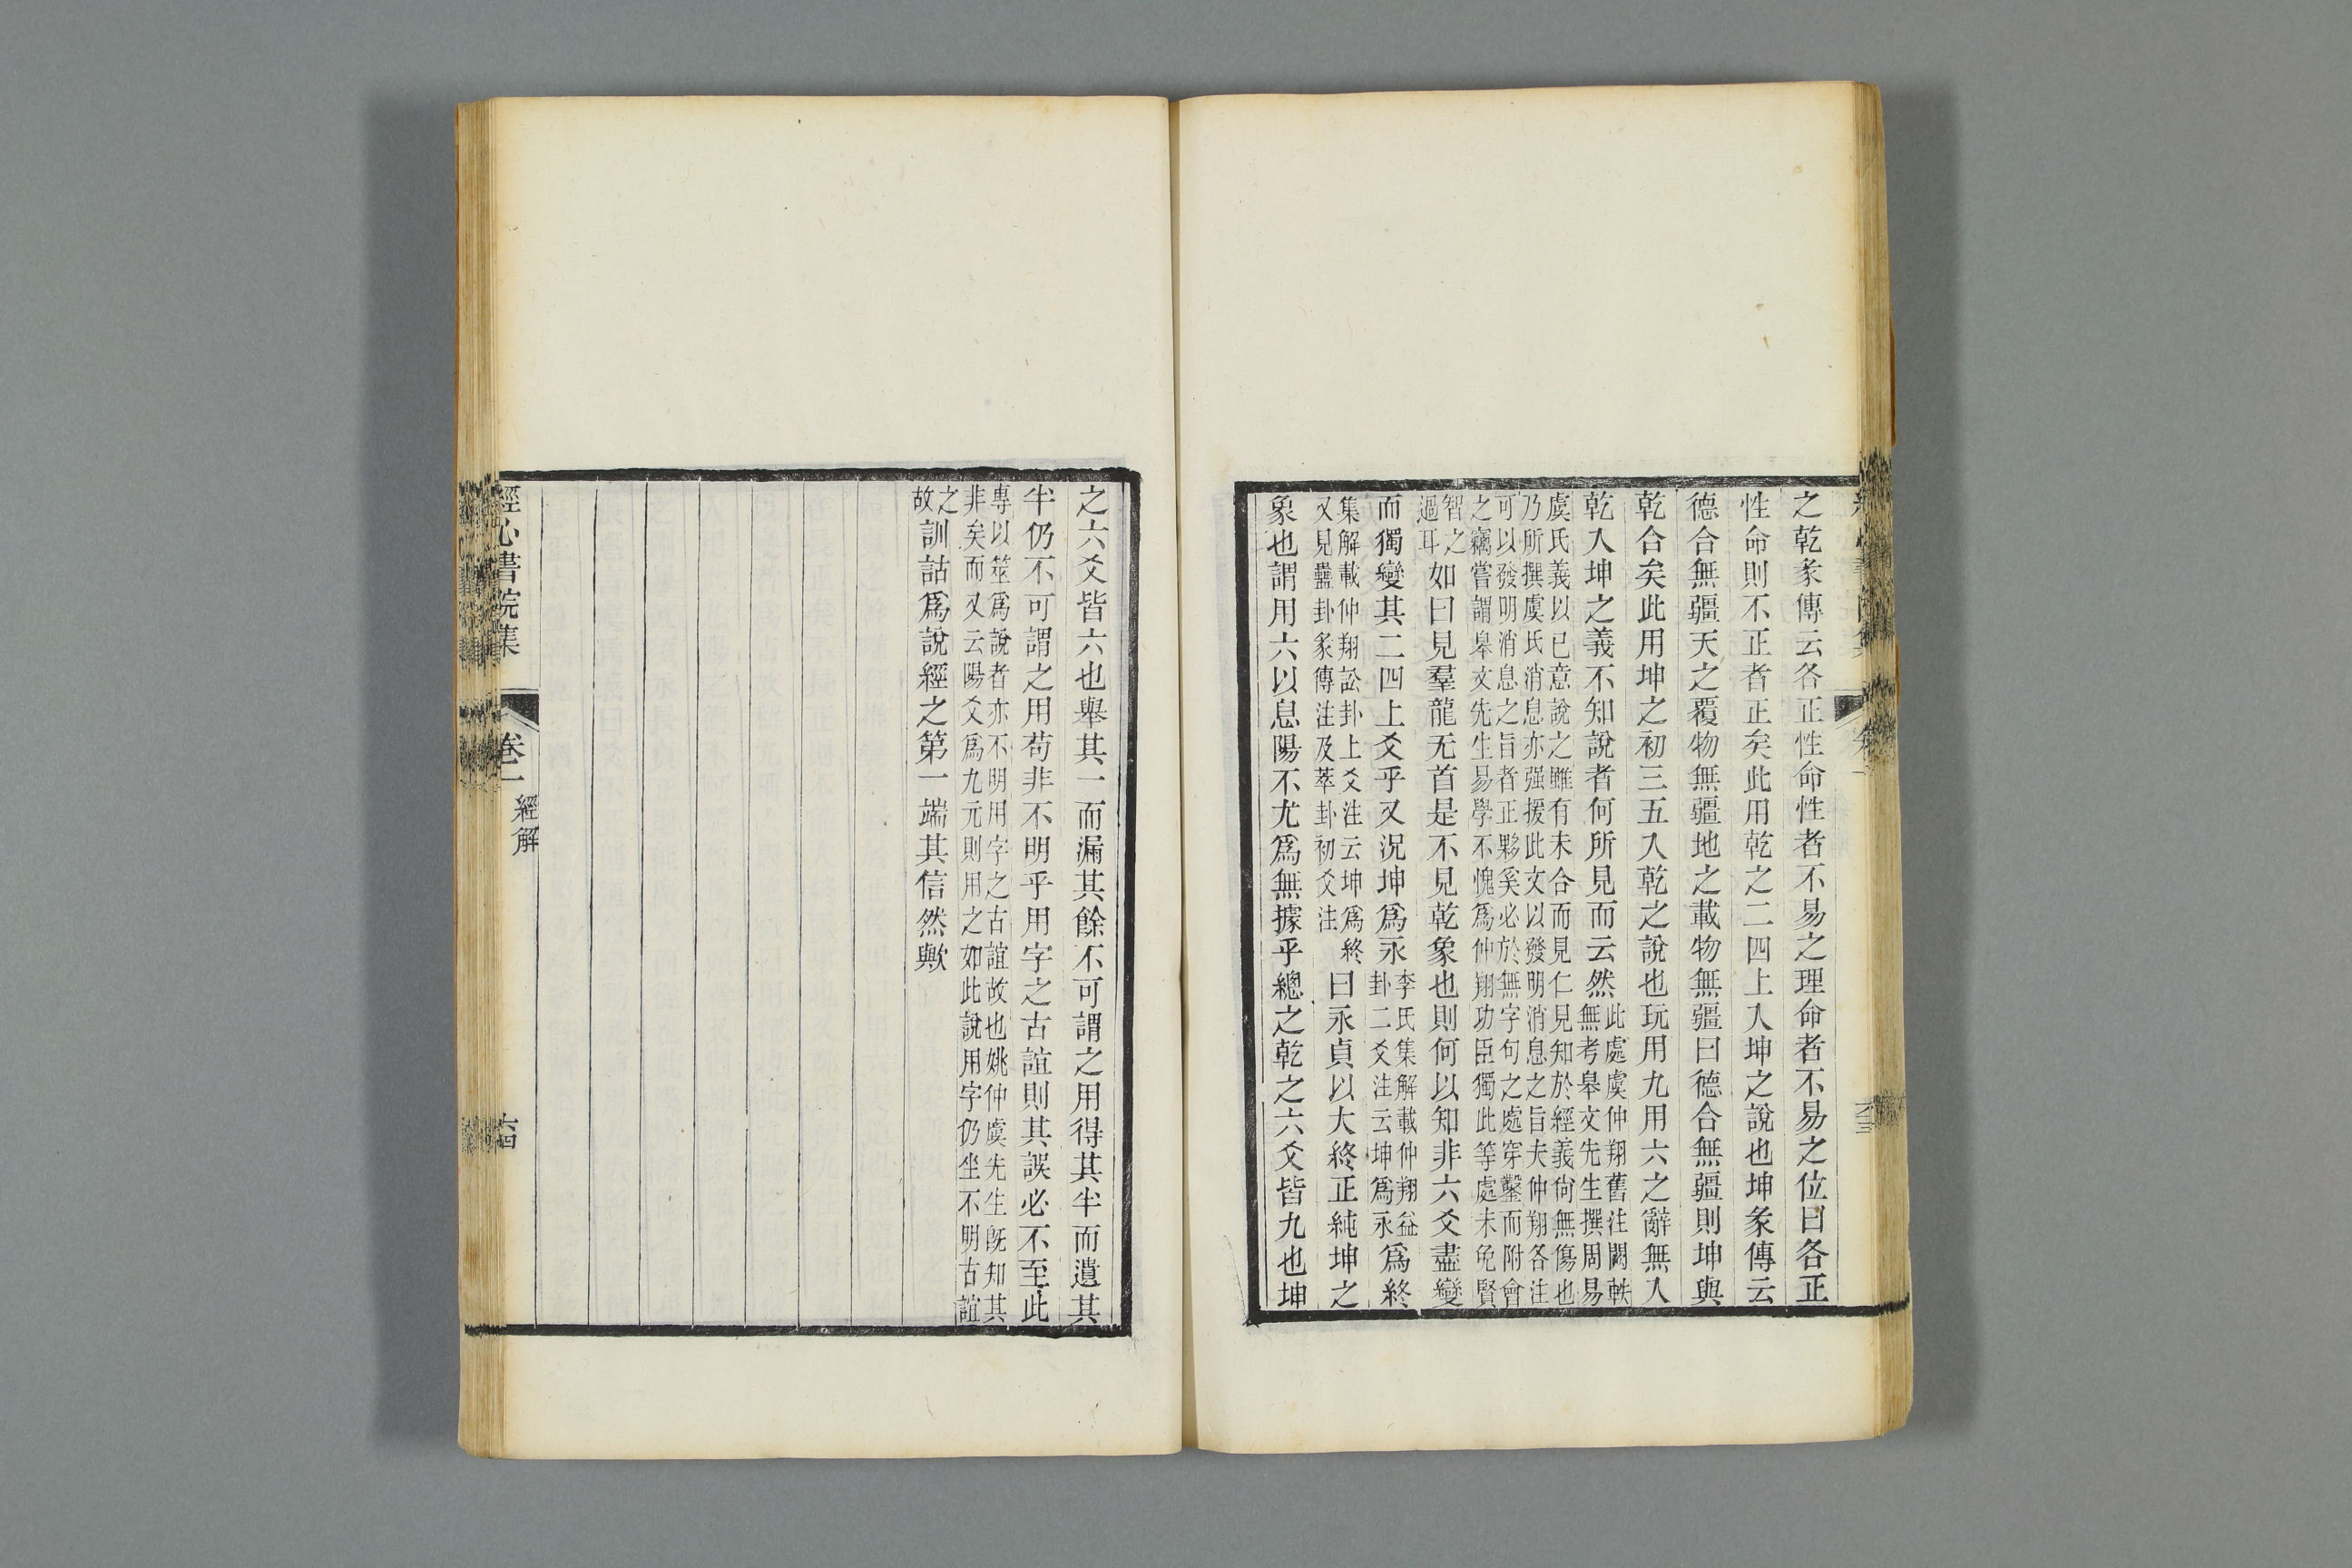 之乾彖傳云各正性命性者不易之理命者不易之位曰各正
性命則不正者正矣此用乾之二四上入坤之說也坤彖傳云
德合無疆天之覆物無疆地之載物無疆曰德合無疆則坤與
乾合矣此用坤之初三五入乾之說也玩用九用六之辭無入
乾入坤之義不知說者何所見而云然
此處虞仲翔舊注闕軼
無考皋文先生撰周易
虞氏義以已意說之雖有未合而見仁見知於經義尙無傷也
乃所撰虞氏消息亦强援此文以發明消息之旨夫仲翔各注
可以發明消息之旨者正夥奚必於無字句之處穿鑿而附會
之竊嘗謂皋文先生易學不愧爲仲翔功臣獨此等處未免賢
智之
過耳
如曰見羣龍无首是不見乾象也則何以知非六爻盡變
而獨變其二四上爻乎又況坤爲永
李氏集解載仲翔益
卦二爻注云坤爲永
爲終
集解載仲翔訟卦上爻注云坤爲終
又見蠱卦彖傳注及萃卦初爻注
曰永貞以大終正純坤之
象也謂用六以息陽不尤爲無據乎總之乾之六爻皆九也坤
六三
之六爻皆六也舉其一而漏其餘不可謂之用得其半而遺其
半仍不可謂之用苟非不明乎用字之古誼則其誤必不至此
專以筮爲說者亦不明用字之古誼故也姚仲虞先生旣知其
非矣而又云陽爻爲九元則用之如此說用字仍坐不明古誼
之
故
訓詁爲說經之第一端其信然歟
經心書院集
卷一
經解
六四